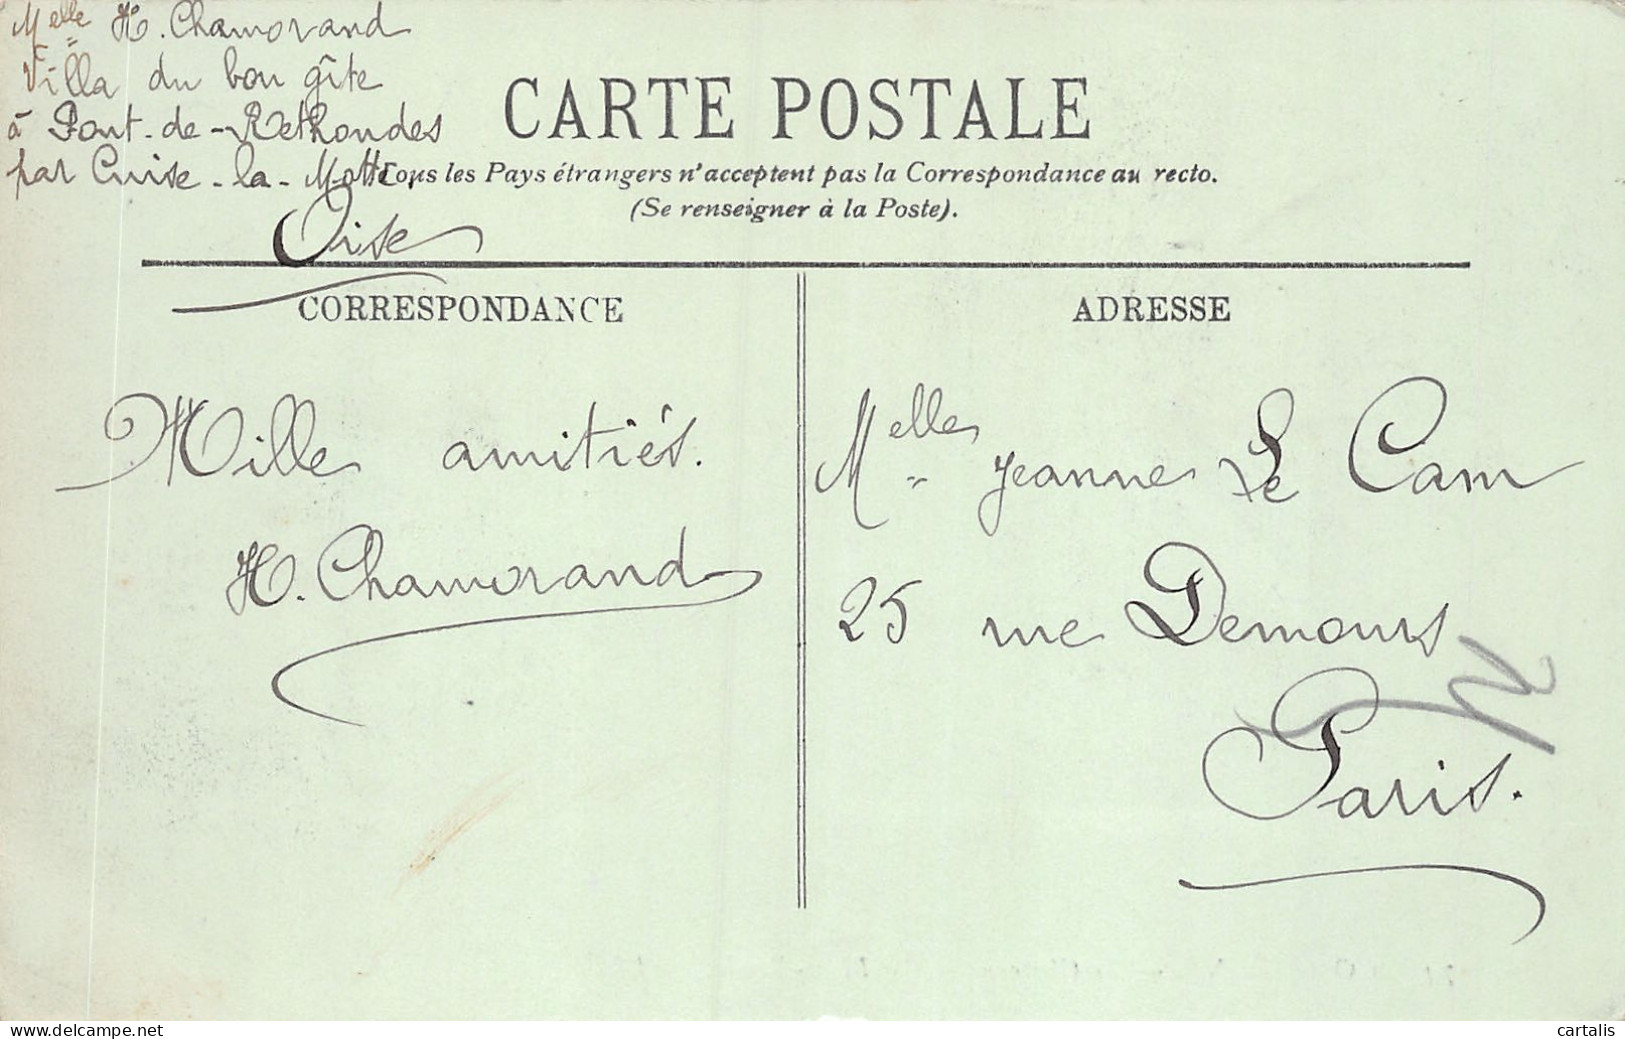 Melle H. Chamorand
Villa du bon gîte
à Pont-de-Rethondes
par Cuise-la-Motte.
Oise
CARTE POSTALE
Tous les Pays étrangers n'acceptent pas la Correspondance au recto.
(Se renseigner à la Poste).
CORRESPONDANCE
Mille amitiés.
H. Chamorand
ADRESSE
Melle Jeanne Le Cam
25 rue Demours
Paris.
www.delcampe.net
cartalis